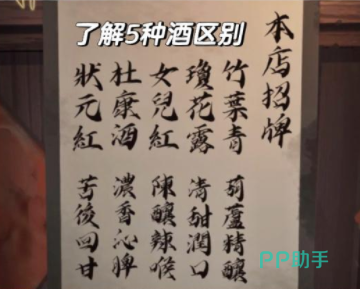 了解5种酒区别
本店招牌
竹葉青
葫蘆精釀
瓊花露
清甜潤口
女兒紅
陳釀辣喉
杜康酒
濃香沁脾
狀元紅
苦後回甘
PP助手